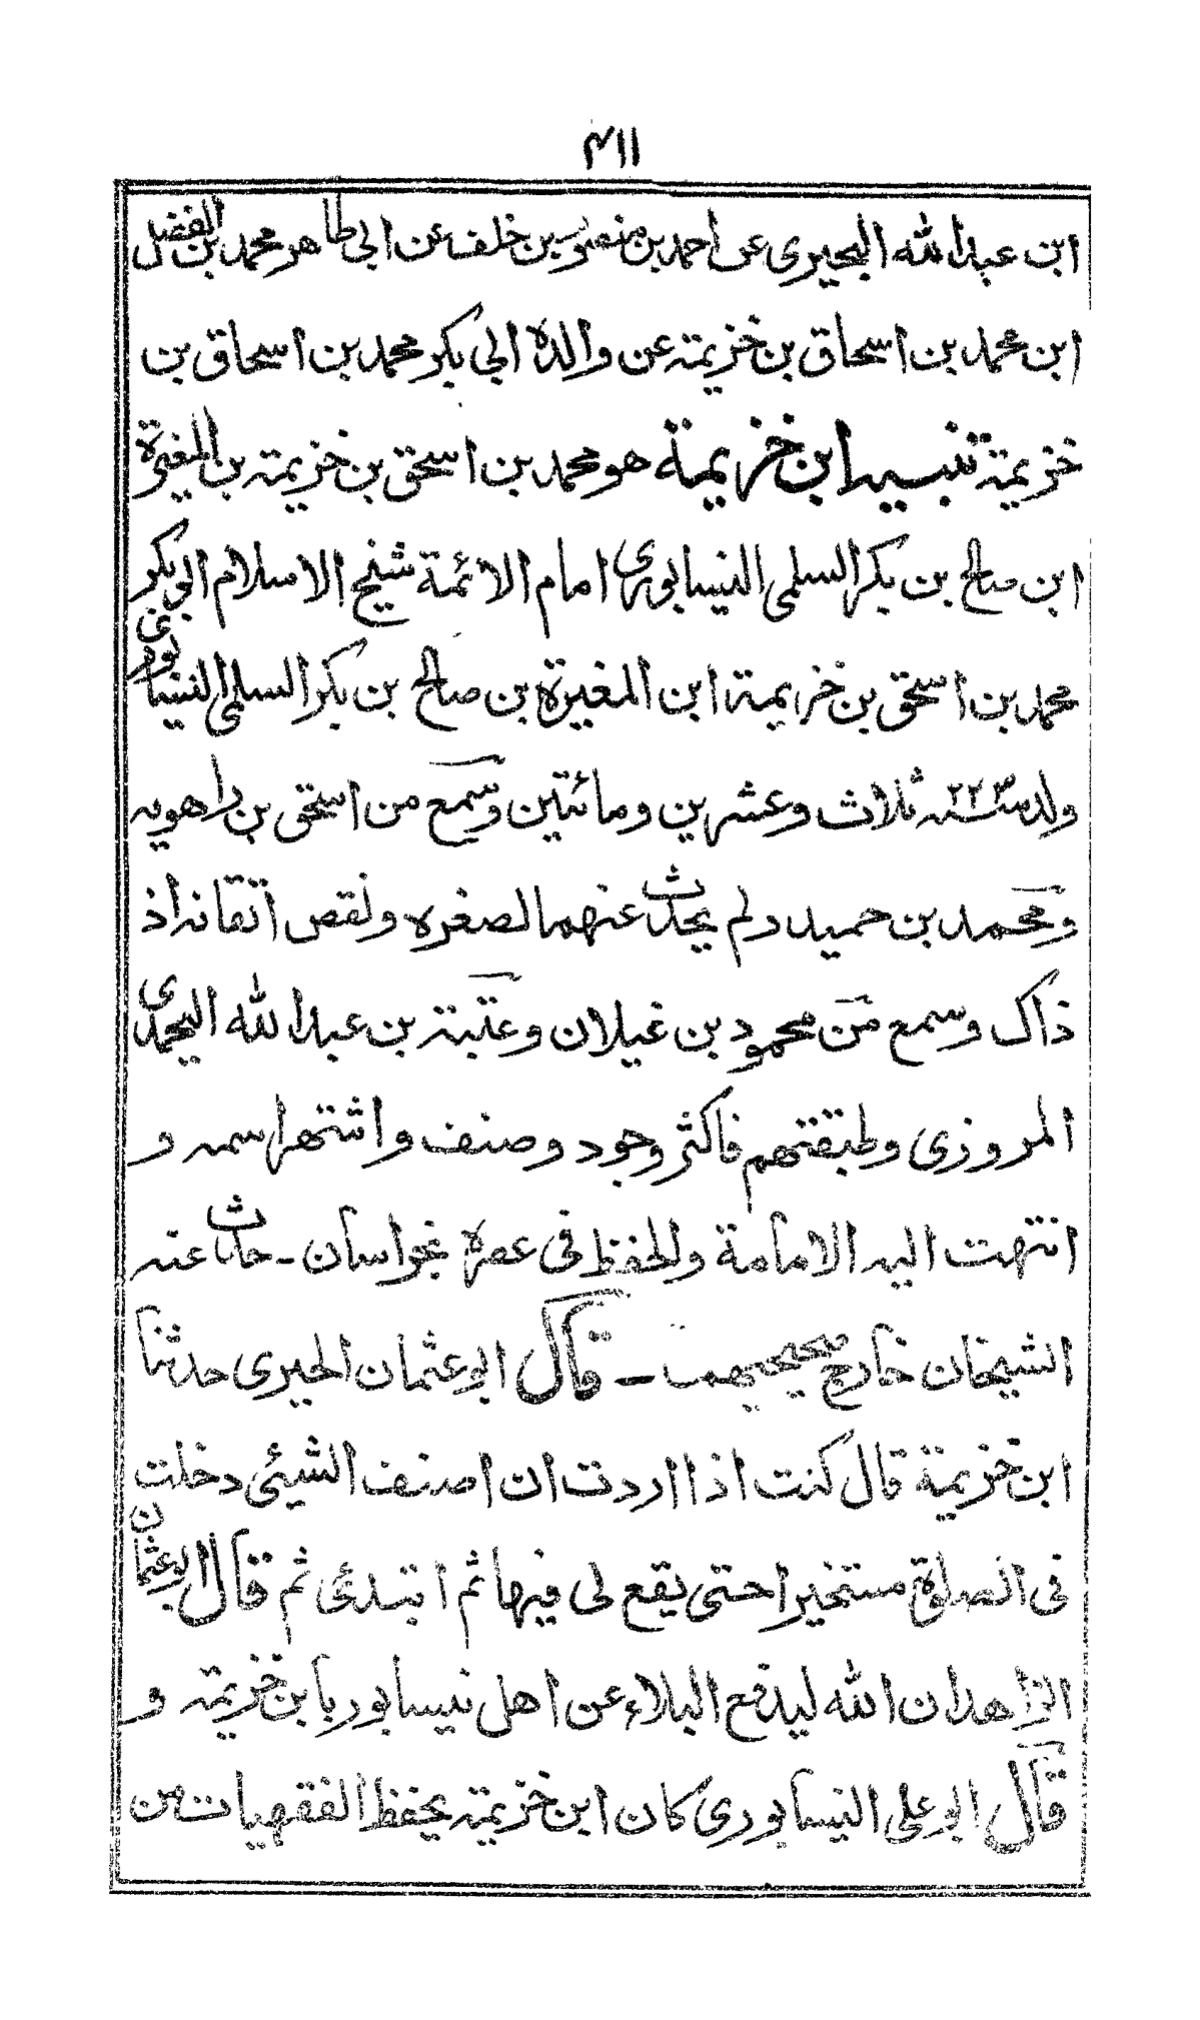 ٣١١
ابن عبدالله البحيرى عن احمد بن منصور بن خلف عن ابى طاهر محمد بن الفضل
ابن محمد بن اسحاق بن خزيمته عن والده ابي بكر محمد بن اسحاق بن
خزيمته تنبيه ابن خزيمة هو محمد بن اسحق بن خزيمته بن المغيرة
ابن صالح بن بكر السلمى النيسابورى امام الائمة شيخ الاسلام ابى بكر
محمد بن اسحق بن خزيمة ابن المغيرة بن صالح بن بكر السلمى النيسابورى
ولد سنه ٢٢٣ ثلاث وعشرين ومائتين وسمع من اسحق بن راهويه
ومحمد بن حميد ولم يحدث عنهما لصغره ونقص اتقانه اذ
ذاك وسمع من محمود بن غيلان وعتبة بن عبدالله اليحمدى
المروزى وطبقتهم فاكثر وجود وصنف واشتهر اسمه و
انتهت اليه الامامة والحفظ فى عصره بخراسان - حدث عنه
الشيخان خارج صحيحيهما - قال ابو عثمان الحيرى حدثنا
ابن خزيمة قال كنت اذا اردت ان اصنف الشيئى دخلت
فى الصلوة مستخيرا حتى يقع لى فيها ثم ابتدئى ثم قال ابو عثمان
الزاهد ان الله ليدفع البلاء عن اهل نيسابور بابن خزيمته و
قال ابو على النيسابورى كان ابن خزيمته يحفظ الفقهيات من